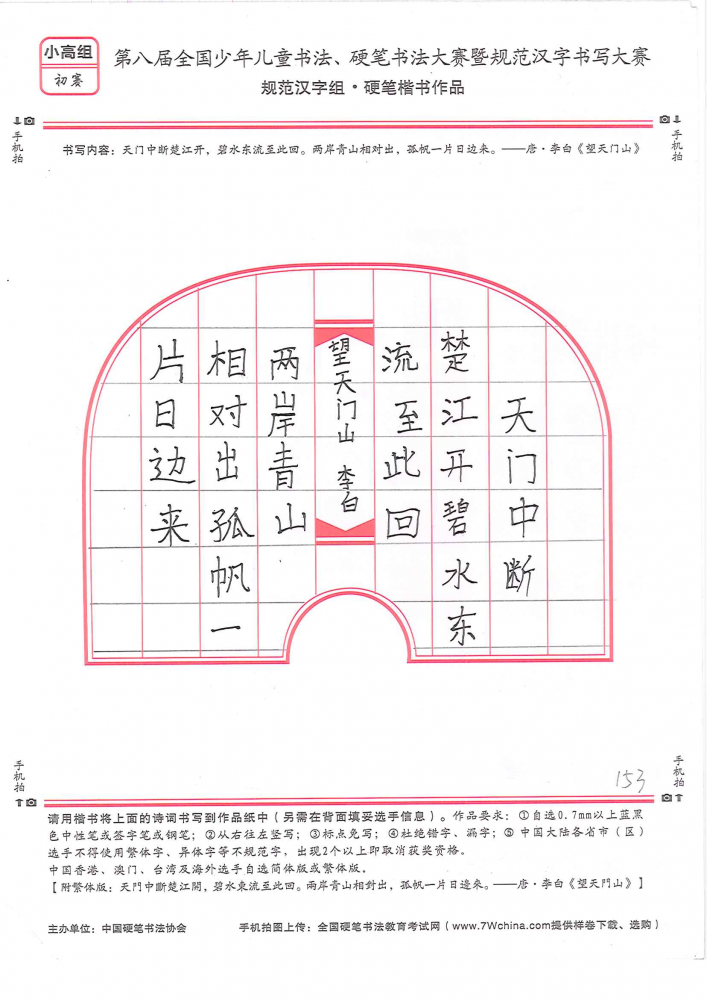 小高组
初赛
第八届全国少年儿童书法、硬笔书法大赛暨规范汉字书写大赛
规范汉字组·硬笔楷书作品
手机拍
手机拍
书写内容：天门中断楚江开，碧水东流至此回。两岸青山相对出，孤帆一片日边来。——唐·李白《望天门山》
天门中断
楚江开碧水东
流至此回
望天门山 李白
两岸青山
相对出孤帆一
片日边来
153
手机拍
手机拍
请用楷书将上面的诗词书写到作品纸中（另需在背面填妥选手信息）。作品要求：①自选0.7mm以上蓝黑
色中性笔或签字笔或钢笔；②从右往左竖写；③标点免写；④杜绝错字、漏字；⑤中国大陆各省市（区）
选手不得使用繁体字、异体字等不规范字，出现2个以上即取消获奖资格。
中国香港、澳门、台湾及海外选手自选简体版或繁体版。
【附繁体版：天門中斷楚江開，碧水東流至此回。兩岸青山相對出，孤帆一片日邊來。——唐·李白《望天門山》】
主办单位：中国硬笔书法协会
手机拍图上传：全国硬笔书法教育考试网（www.7Wchina.com提供样卷下载、选购）